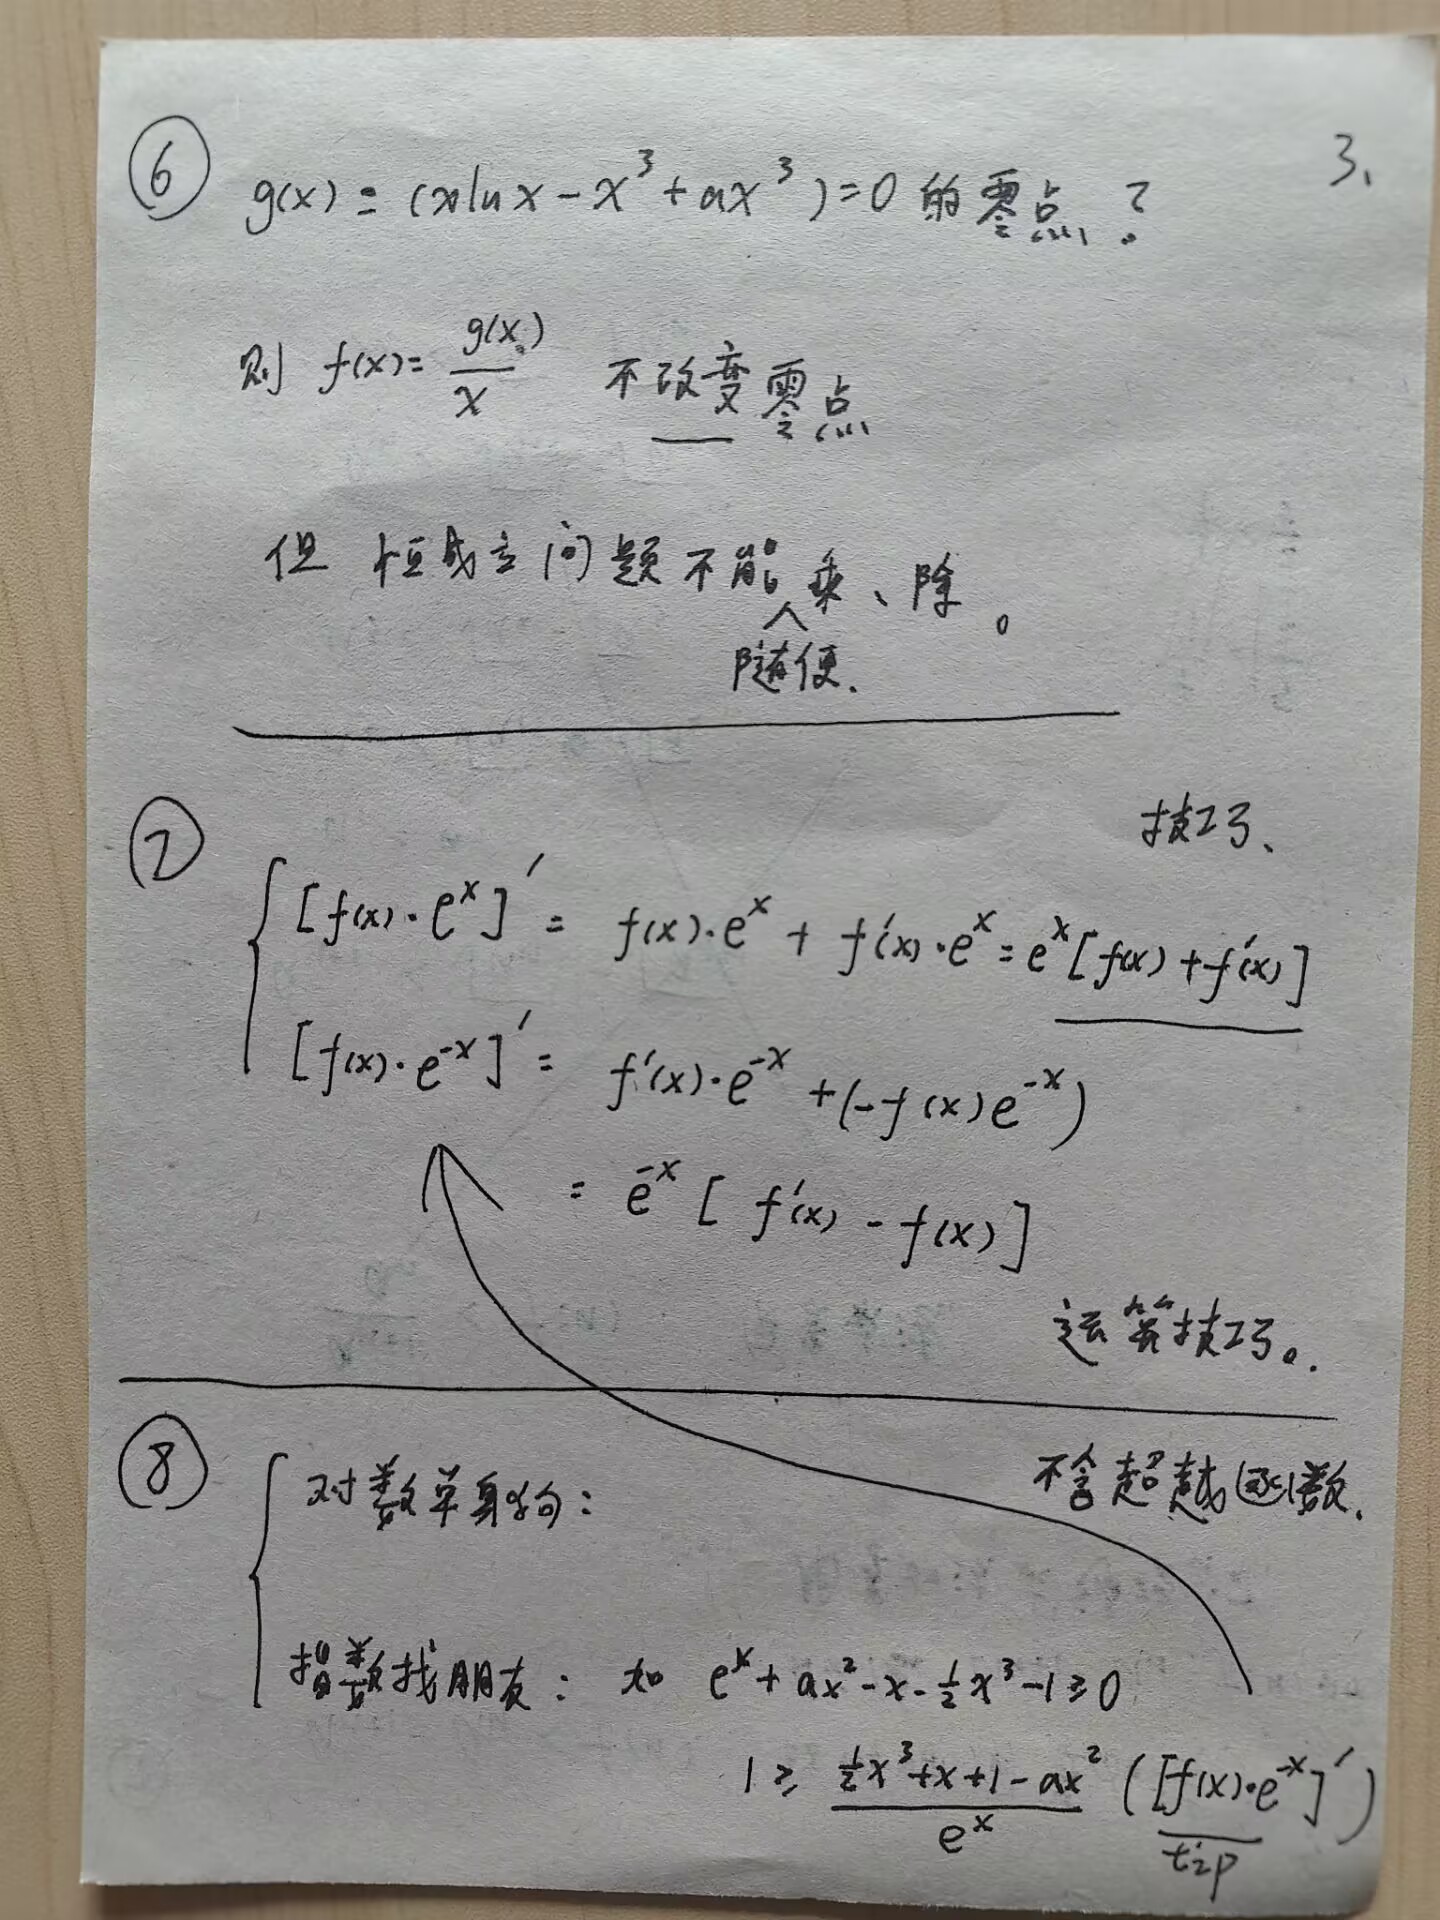 3.
⑥ g(x) = (xlnx - x³ + ax³) = 0 的零点?
则 f(x) = g(x)/x 不改变零点
但恒成立问题不能随便乘、除。
⑦ 技巧、
[f(x)·eˣ]′ = f(x)·eˣ + f′(x)·eˣ = eˣ[f(x) + f′(x)]
[f(x)·e⁻ˣ]′ = f′(x)·e⁻ˣ + (-f(x)e⁻ˣ)
= e⁻ˣ[f′(x) - f(x)]
运算技巧。
⑧ 对数单身狗: 不含超越函数.
指数找朋友: 如 eˣ + ax² - x - ½x³ - 1 ≥ 0
1 ≥ (½x³ + x + 1 - ax²)/eˣ ([f(x)·e⁻ˣ]′)